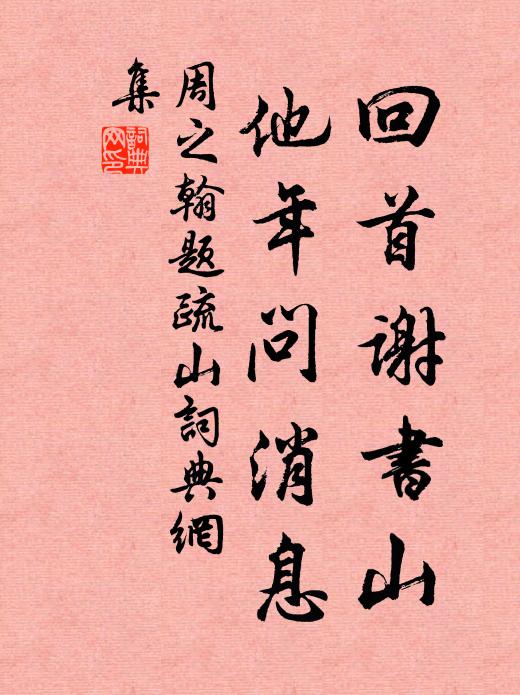 回首谢書山
他年问消息
周之翰题疏山詞典網
集
詞典
网印